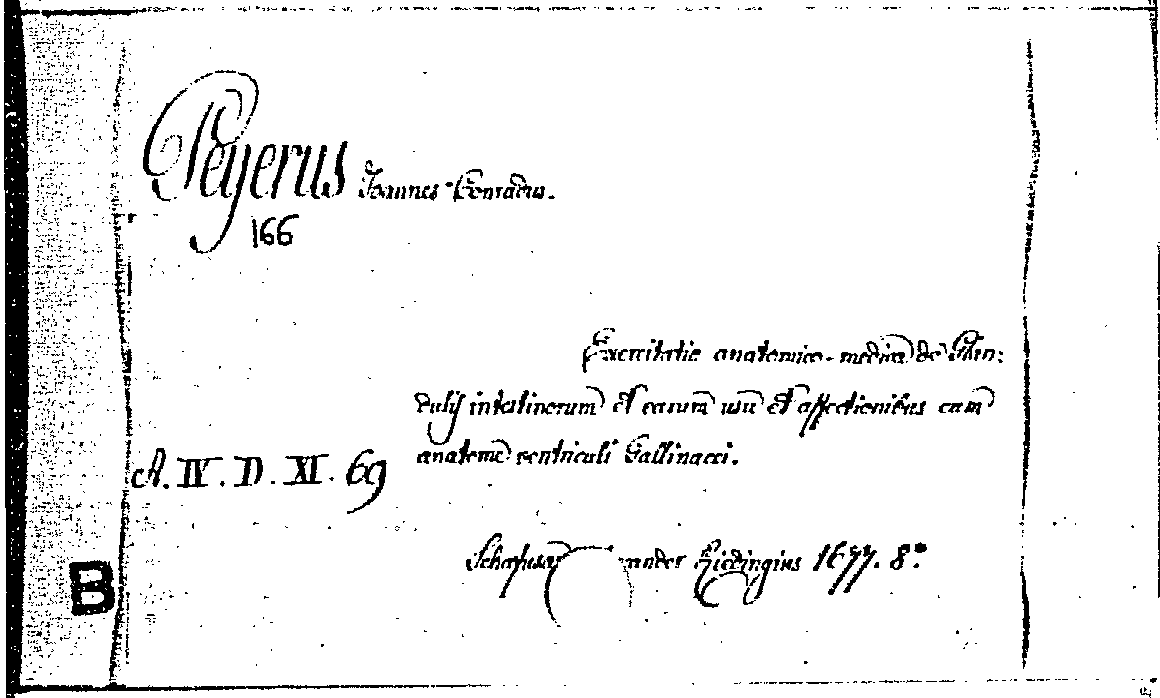 Peyerus Joannes Conradus.
166
Exercitatio anatomico-medica de Glan:
dulis intestinorum et earum usu et affectionibus cum
anatome ventriculi Gallinacei.
A. IV. D. XI. 69
Riedingius 1677. 8°
B